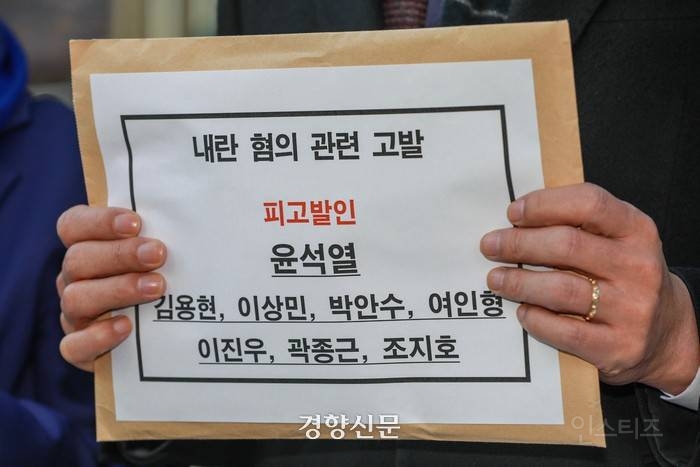 내란 혐의 관련 고발
피고발인
윤석열
김용현, 이상민, 박안수, 여인형
이진우, 곽종근, 조지호
경향신문
인스티즈